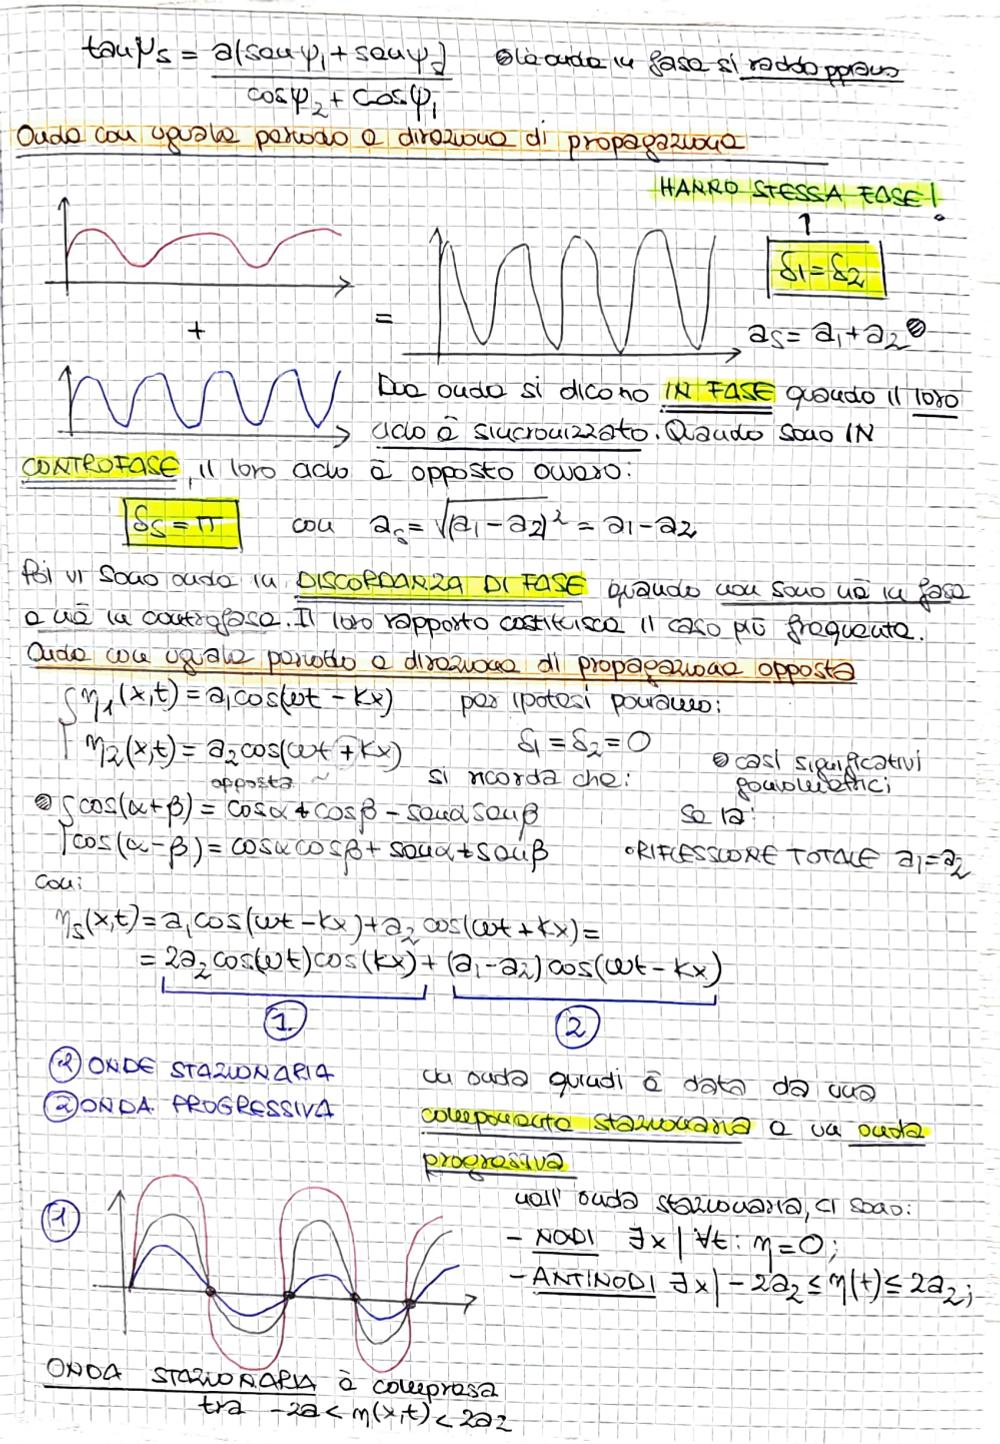 tanψs = a(senψ1 + senψ2)
cosψ2 + cosψ1
le onde in fase si raddoppiano
Onde con uguale periodo e direzione di propagazione
HANNO STESSA FASE!
δ1 = δ2
+
=
as = a1 + a2
Due onde si dicono IN FASE quando il loro
ciclo è sincronizzato. Quando sono IN
CONTROFASE, il loro ciclo è opposto ovvero:
δs = π con as = √(a1 - a2)² = a1 - a2
Poi vi sono onde in DISCORDANZA DI FASE quando non sono nè in fase
e nè in controfase. Il loro rapporto costituisce il caso più frequente.
Onde con uguale periodo e direzione di propagazione opposta
η1(x,t) = a1cos(ωt - kx) per ipotesi poniamo:
η2(x,t) = a2cos(ωt + kx) δ1 = δ2 = 0
opposta ~
si ricorda che:
casi significativi
goniometrici
cos(α+β) = cosα + cosβ - senα senβ
se la:
cos(α-β) = cosα cosβ + senα + senβ
• RIFLESSIONE TOTALE a1 = a2
con:
ηs(x,t) = a1cos(ωt - kx) + a2 cos(ωt + kx) =
= 2a2 cos(ωt)cos(kx) + (a1 - a2)cos(ωt - kx)
1 2
1 ONDE STAZIONARIA
2 ONDA PROGRESSIVA
un onda quindi è data da una
componente stazionaria e un onda
progressiva
1
nell' onda stazionaria, ci sono:
- NODI ∃x | ∀t: η = 0;
- ANTINODI ∃x | -2a2 ≤ η(t) ≤ 2a2;
ONDA STAZIONARIA è compresa
tra -2a < η(x,t) < 2a2